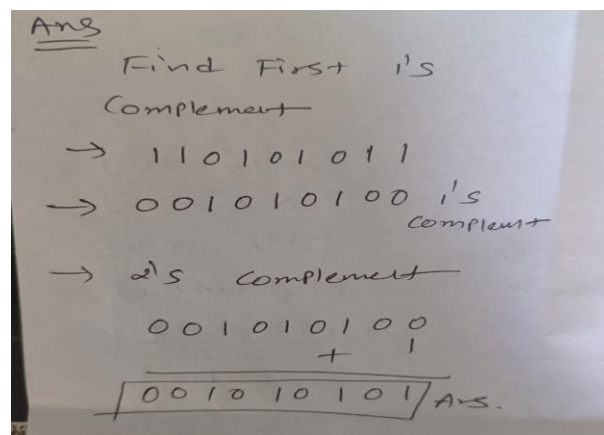 Ans
Find First 1's
Complement
→ 1 1 0 1 0 1 0 1 1
→ 0 0 1 0 1 0 1 0 0 1's
complent
→ 2's complement
0 0 1 0 1 0 1 0 0
+ 1
0 0 1 0 1 0 1 0 1 Ans.